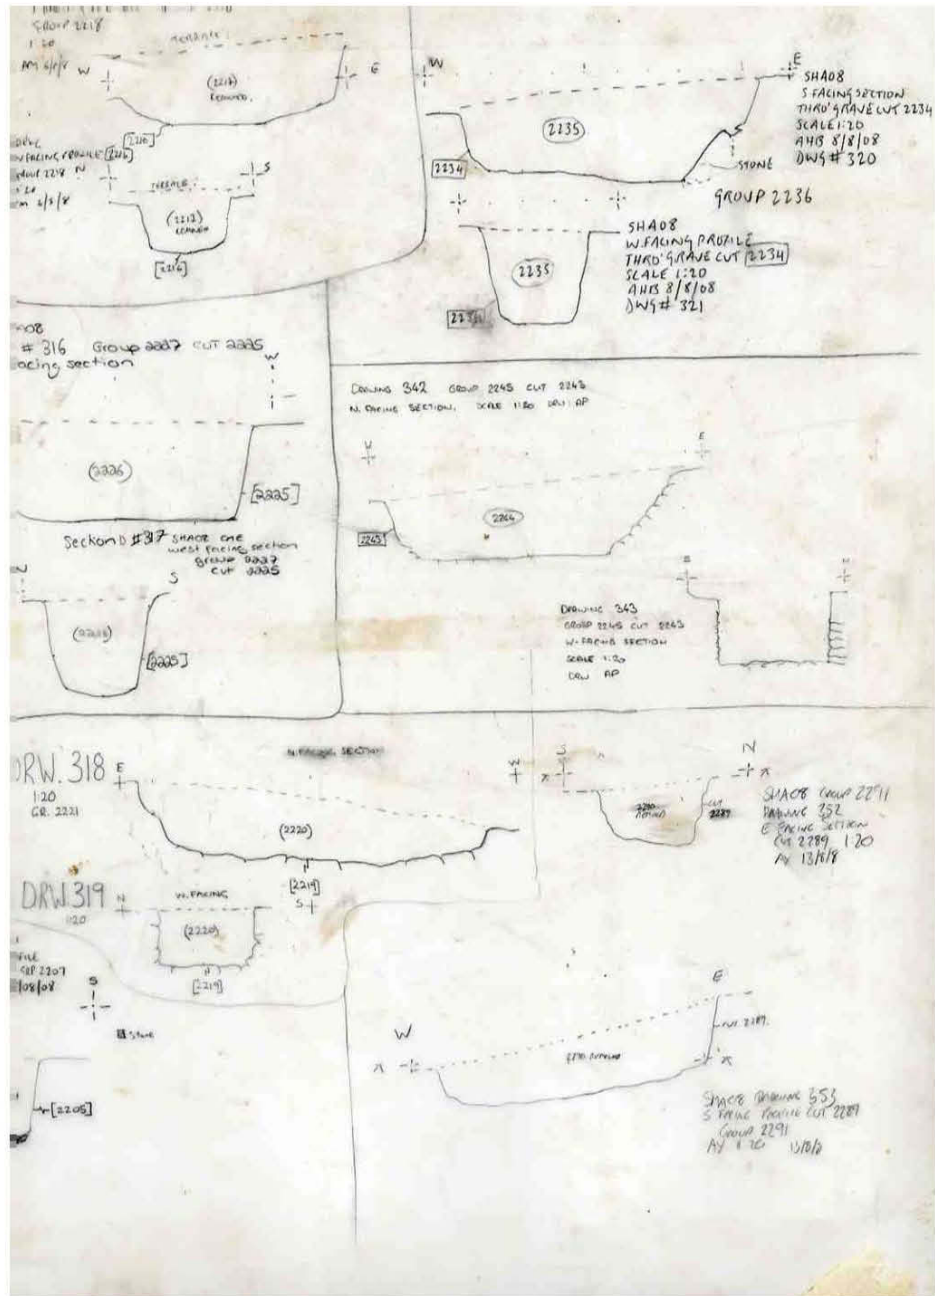 GROUP 2218
1:20
W
E
TERRACE
(2217)
REMOVED.
[2216]
W FACING PROFILE [2216]
GROUP 2218
N
S
1:20
(2217)
REMOVED
[2216]
W
E
2235
2234
STONE
SHA08
S FACING SECTION
THRO' GRAVE CUT 2234
SCALE 1:20
AHB 8/8/08
DWG # 320
GROUP 2236
2235
2234
SHA08
W. FACING PROFILE
THRO' GRAVE CUT 2234
SCALE 1:20
AHB 8/8/08
DWG # 321
# 316 Group 2227 CUT 2225
acing section
W
(2226)
[2225]
Section D #317 SHA08
west facing section
group 2227
CUT 2225
S
(2226)
[2225]
DRAWING 342 GROUP 2245 CUT 2243
N. FACING SECTION. SCALE 1:20 DRW: AP
W
E
2244
2243
DRAWING 343
GROUP 2245 CUT 2243
W-FACING SECTION
SCALE 1:20
DRW AP
DRW. 318
1:20
GR. 2221
E
N. FACING SECTION
W
(2220)
[2219]
DRW. 319
1:20
N
W. FACING
S
(2220)
[2219]
S
N
2290
CUT
2289
SHA08 GROUP 2291
DRAWING 352
E FACING SECTION
CUT 2289 1:20
AY 13/8/8
FILE
GRP 2207
/08/08
S
STONE
[2205]
W
E
CUT 2289.
SHA08 DRAWING 353
S FACING PROFILE CUT 2289
GROUP 2291
AY 1:20 13/8/8